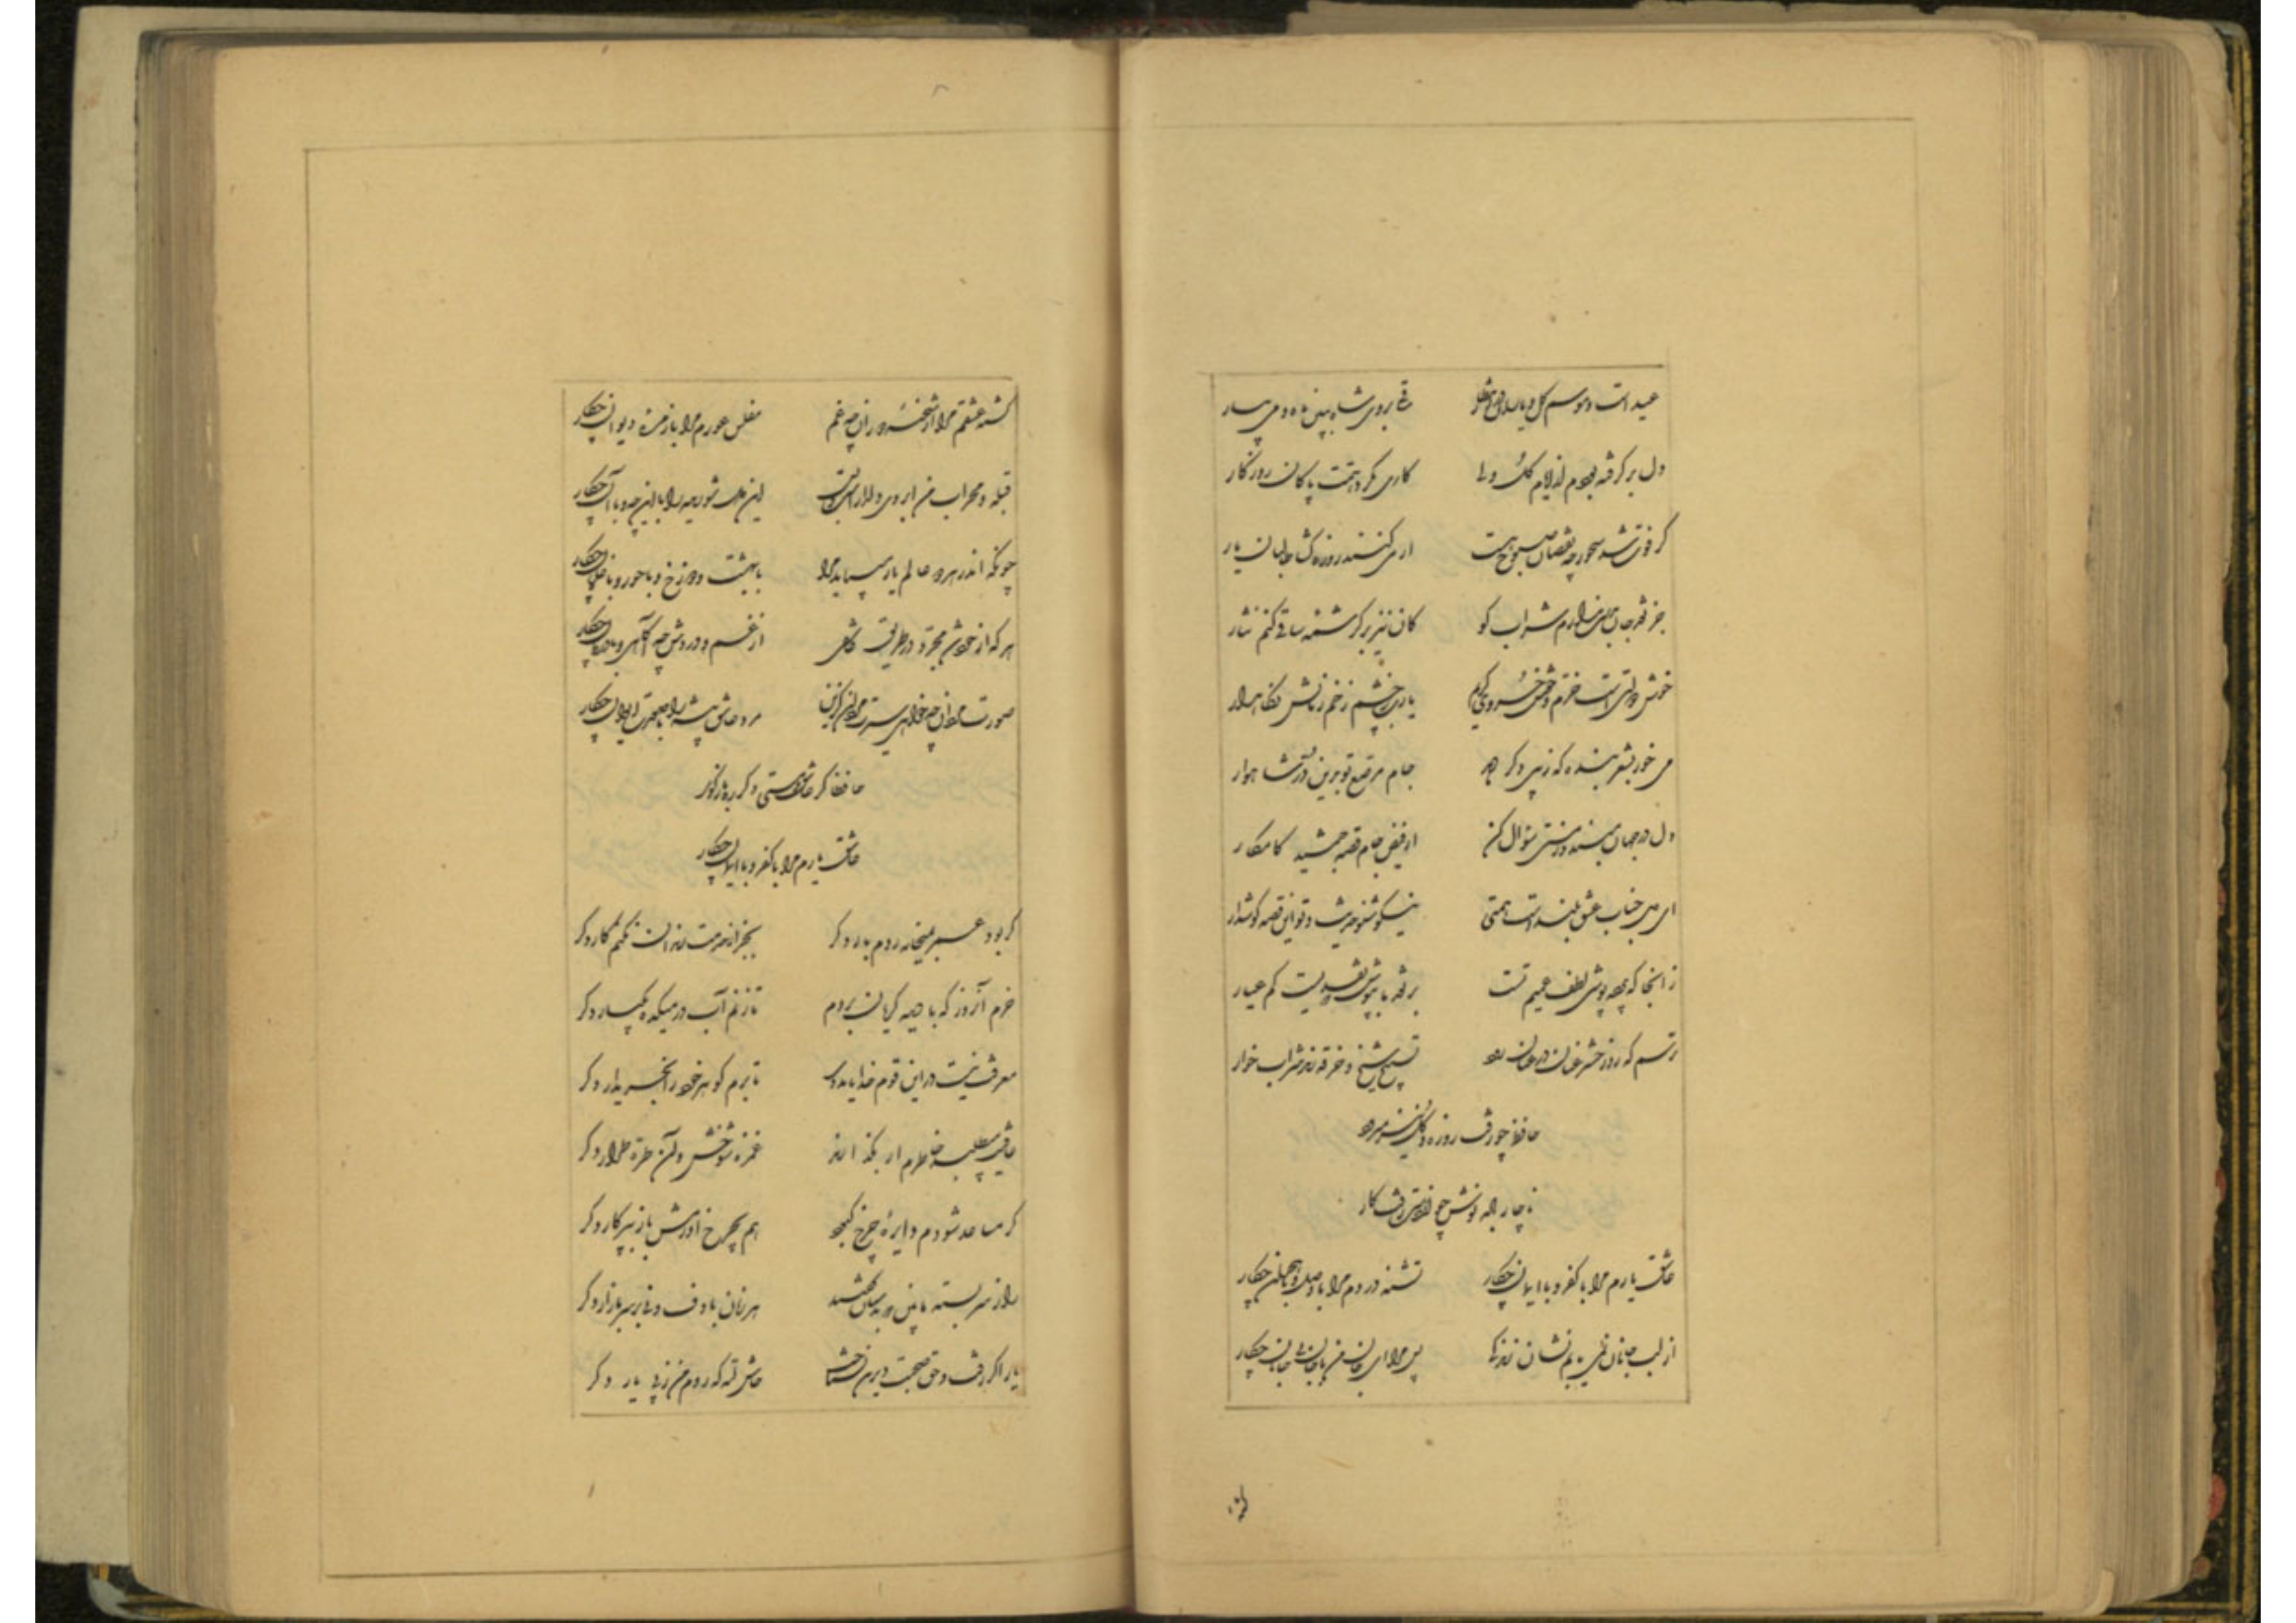 عید است و موسم گل و یاران در انتظار ساقی بروی شاه ببین ماه و می بیار
دل بر گرفته بودم از ایام گل ولی کاری بکرد همت پاکان روزگار
گر فوت شد سحور چه نقصان صبوح هست از می کنند روزه گشا طالبان یار
جز نقد جان بدست ندارم شراب کو کان نیز بر کرشمه ساقی کنم نثار
خوش دولتی است خرم و خوش خسروی کریم یا رب ز چشم زخم زمانش نگاهدار
می خور بشعر بنده که زیبی دگر دهد جام مرصع تو بدین در شاهوار
دل در جهان مبند و ز مستی سؤال کن از فیض جام و قصه جمشید کامکار
نیکو شنو حدیث و تو این قصه گوشدار
زانجا که پرده پوشی لطف عمیم تست بر نقد ما بپوش که قلبیست کم عیار
ترسم که روز حشر عنان در عنان رود تسبیح شیخ و خرقه رند شراب خوار
حافظ چو رفت روزه و گل نیز میرود
ناچار باده نوش چو از دست رفت کار
عاشق یارم مرا با کفر و با ایمان چکار تشنه دردم مرا با وصل و با هجران چکار
از لب جانان نمی یابم نشان زندگی پس مرا ای جان من با جان بی جانان چکار
کشته عشقم مرا از شحنه دوران چه غم مفلس عورم مرا با زمره دیوان چکار
قبله و محراب من ابروی دلدار است و بس این دل شوریده را با این چه و با آن چکار
چونکه اندر هر دو عالم یار میباید مرا با بهشت و دوزخ و با حور و با غلمان چکار
هر که از خود شد مجرد در طریق عاشقی از غم و دردش چه آگاهی و با درمان چکار
مرد عاشق پیشه را با صورت ایوان چکار
حافظا گر عاشق و مستی دگر ره باز گو
عاشق یارم مرا با کفر و با ایمان چکار
گر بود عمر بمیخانه روم بار دگر بجز از خدمت رندان نکنم کار دگر
خرم آنروز که با دیده گریان بروم تا زنم آب در میکده یکبار دگر
معرفت نیست در این قوم خدایا مددی تا برم گوهر خود را بخریدار دگر
عافیت میطلبد خاطرم ار بگذارند غمزه شوخش و آن طره طرار دگر
گر مساعد شودم دایره چرخ کبود هم بچرخ آورمش باز بپرکار دگر
راز سر بسته ما بین که بدستان گفتند هر زمان با دف و نی بر سر بازار دگر
یار اگر رفت و حق صحبت دیرین نشناخت حاش لله که روم من ز پی یار دگر